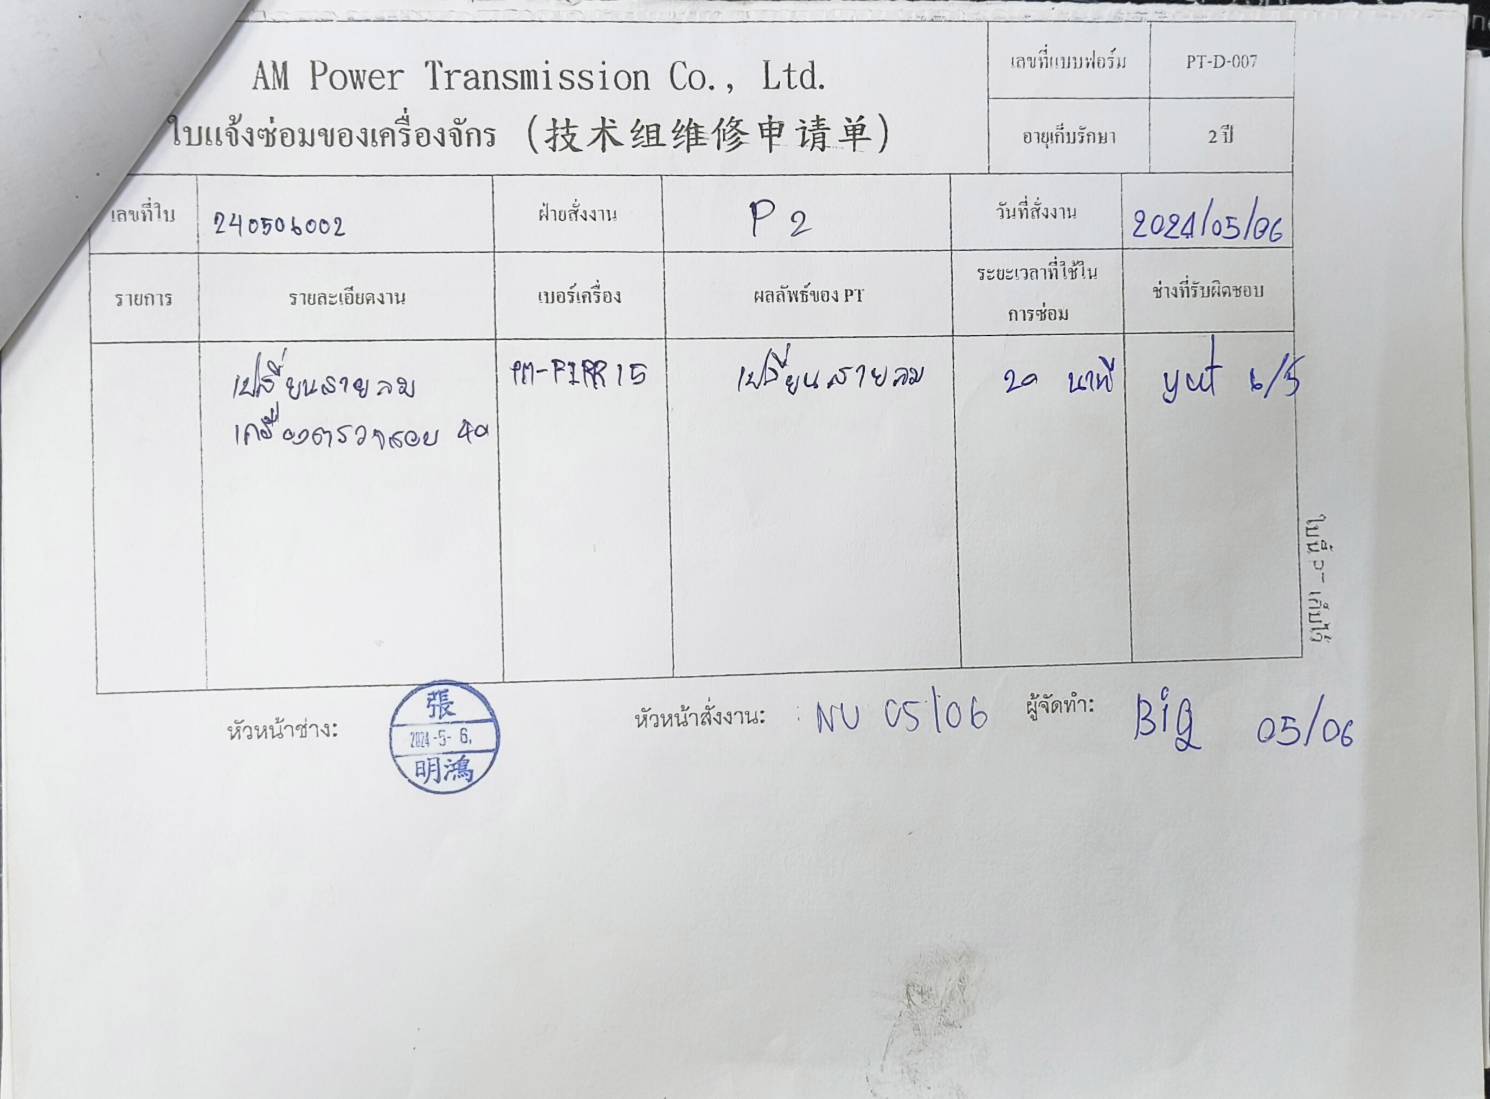 AM Power Transmission Co., Ltd.
ใบแจ้งซ่อมของเครื่องจักร (技术组维修申请单)
เลขที่แบบฟอร์ม PT-D-007
อายุเก็บรักษา 2 ปี
เลขที่ใบ 240506002 ฝ่ายสั่งงาน P2 วันที่สั่งงาน 2024/05/06
รายการ รายละเอียดงาน เบอร์เครื่อง ผลลัพธ์ของ PT ระยะเวลาที่ใช้ใน ช่างที่รับผิดชอบ
การซ่อม
เปลี่ยนสายลม เปลี่ยนสายลม 20 นาที yut 6/5
เครื่องตรวจสอบ
หัวหน้าช่าง: 張 2024-5-6. 明鴻 หัวหน้าสั่งงาน: NU 05/06 ผู้จัดทำ: Big 05/06